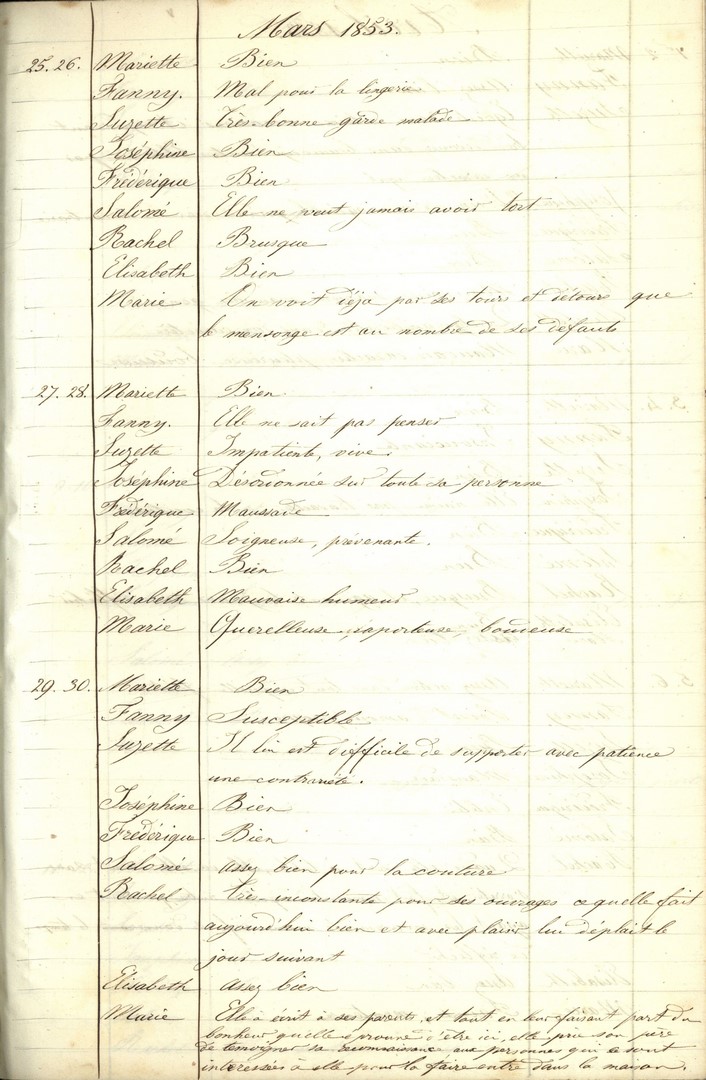 Mars 1853.
25. 26. Mariette Bien
Fanny. Mal pour la lingerie
Suzette très-bonne garde malade
Joséphine Bien
Frédérique Bien
Salomé Elle ne veut jamais avoir tort
Rachel Brusque
Elisabeth Bien
Marie On voit déjà par ses tours et détours que
le mensonge est au nombre de ses défauts
27. 28. Mariette Bien
Fanny. Elle ne sait pas penser
Suzette Impatiente, vive.
Joséphine Désordonnée sur toute sa personne
Frédérique Maussade
Salomé Soigneuse, prévenante.
Rachel Bien
Elisabeth Mauvaise humeur
Marie Querelleuse, raporteuse, boudeuse
29. 30. Mariette Bien
Fanny Susceptible
Suzette Il lui est difficile de supporter avec patience
une contrariété.
Joséphine Bien
Frédérique Bien
Salomé assez bien pour la couture
Rachel très-inconstante pour ses ouvrages ce quelle fait
aujourd'hui bien et avec plaisir lui déplait le
jour suivant
Elisabeth assez bien
Marie Elle a écrit à ses parents, et tout en leur faisant part du
bonheur quelle éprouve d'être ici, elle prie son père
de temoigner sa reconnaissance aux personnes qui se sont
intéressées à elle pour la faire entrer dans la maison.